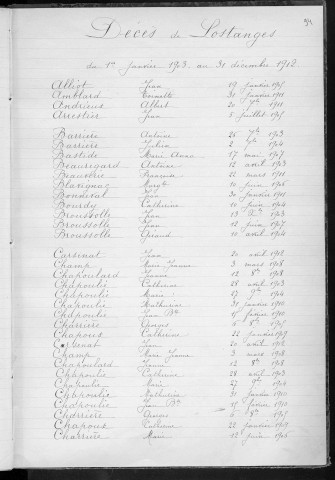 Décès de Lostanges
du 1er janvier 1903 au 31 décembre 1912
Alliot Jean 29 janvier 1905
Amblard Toinette 31 janvier 1911
Andrieux Albert 20 7bre 1911
Arrestier Jean 5 juillet 1905
Barrière Antoine 25 7bre 1903
Barrière Julien 2 7bre 1904
Bastide Marie Anna 17 mai 1907
Beauregard Antoine 12 avril 1903
Beauverie Françoise 22 mars 1911
Blavignac 10 juin 1906
Bondeval Jean 30 janvier 1911
Bourdy Catherine 10 juin 1904
Broussolle Jean 13 1903
Broussolle Jean 12 juin 1907
Broussolle Géraud 10 avril 1904
Carsenat Jean 20 avril 1912
Champ Marie Jeanne 3 mars 1908
Chapoulard Jeanne 12 8bre 1908
Chapoulie Catherine 28 avril 1903
Chapoulie Marie 27 9bre 1904
Chapoulie Mathurine 31 janvier 1910
Chapoulie Jean Bte 15 février 1910
Charrière 6 8bre 1905
Chapoux Catherine 22 janvier 1909
Carsenat Jean 20 avril 1912
Champ Marie Jeanne 3 mars 1908
Chapoulard Jeanne 12 8bre 1908
Chapoulie Catherine 28 avril 1903
Chapoulie Marie 27 9bre 1904
Chapoulie Mathurine 31 janvier 1910
Chapoulie Jean Bte 15 février 1910
Charrière 6 8bre 1905
Chapoux Catherine 22 janvier 1909
Charrière Marie 12 juin 1905